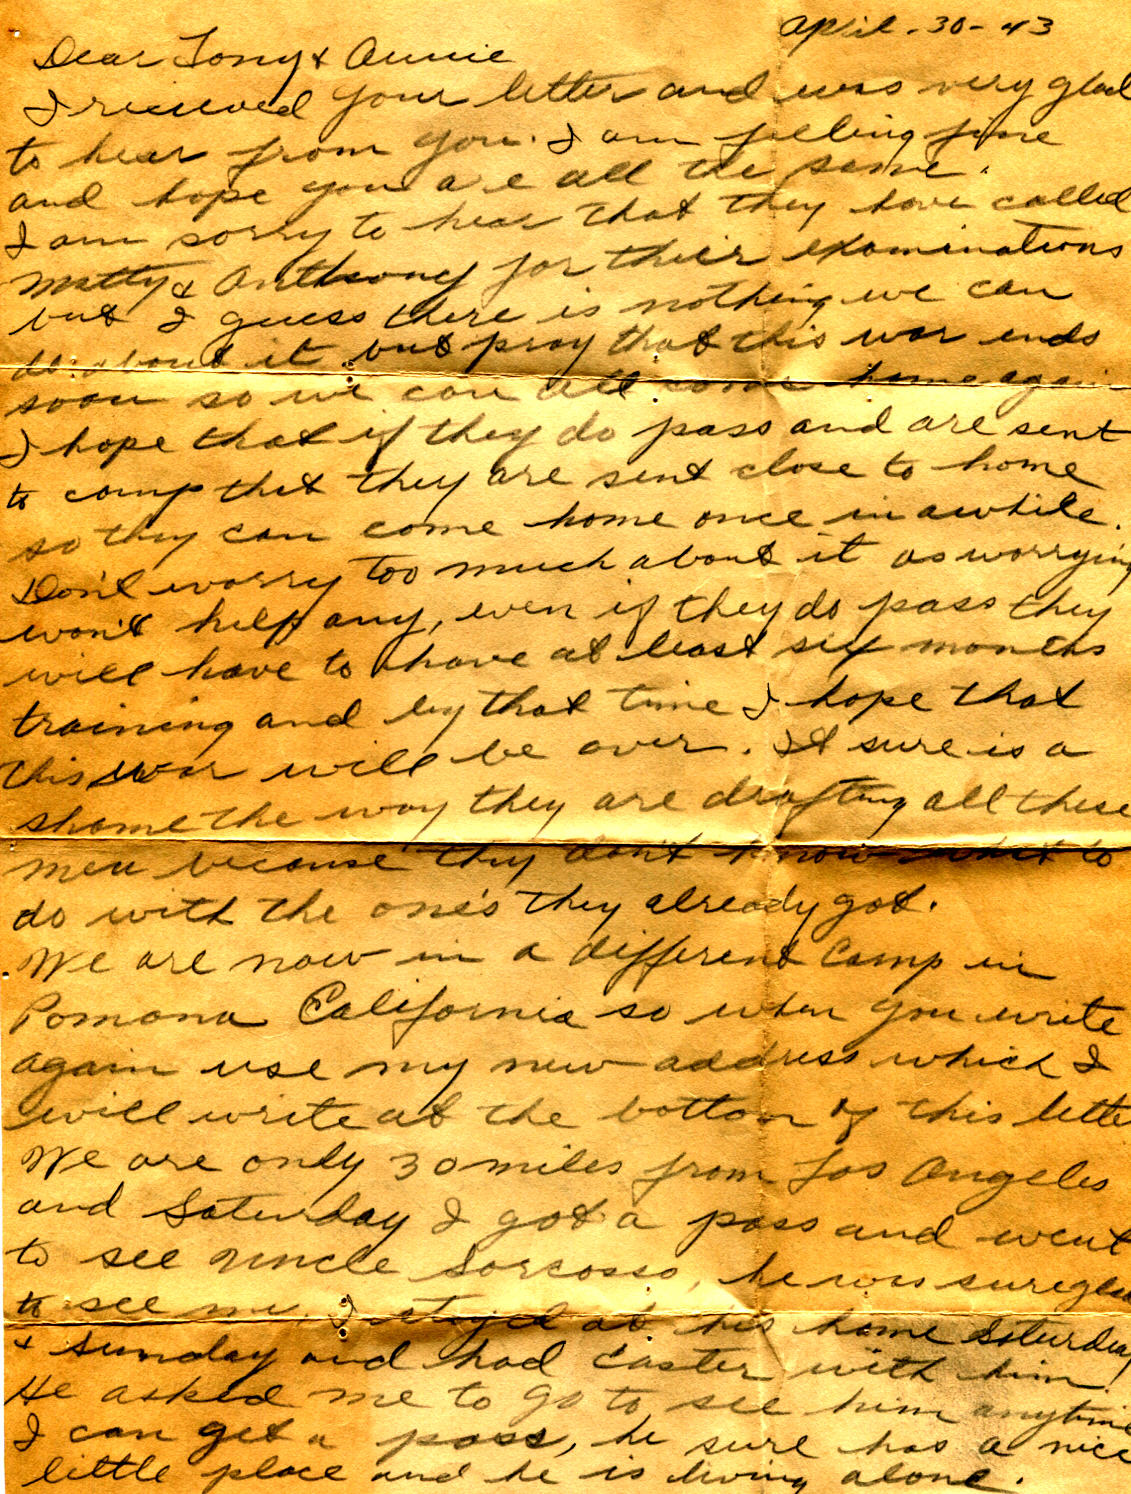 April-30-43
Dear Tony & Annie
I recieved your letter and was very glad
to hear from you. I am feeling fine
and hope you are all the same.
I am sorry to hear that they have called
Matty & Anthony for their examinations
but I guess there is nothing we can
do about it but pray that this war ends
soon so we can all come home again
I hope that if they do pass and are sent
to camp that they are sent close to home
so they can come home once in awhile.
Don't worry too much about it as worrying
won't help any, even if they do pass they
will have to have at least six months
training and by that time I hope that
this war will be over. It sure is a
shame the way they are drafting all these
men because they don't know what to
do with the one's they already got.
We are now in a different Camp in
Pomona California so when you write
again use my new address which I
will write at the bottom of this letter
We are only 30 miles from Los Angeles
and Saturday I got a pass and went
to see Uncle Sorcosso, he was sure glad
to see me. I stayed at his home Saturday
& Sunday and had Easter with him.
He asked me to go to see him anytime
I can get a pass, he sure has a nice
little place and he is living alone.